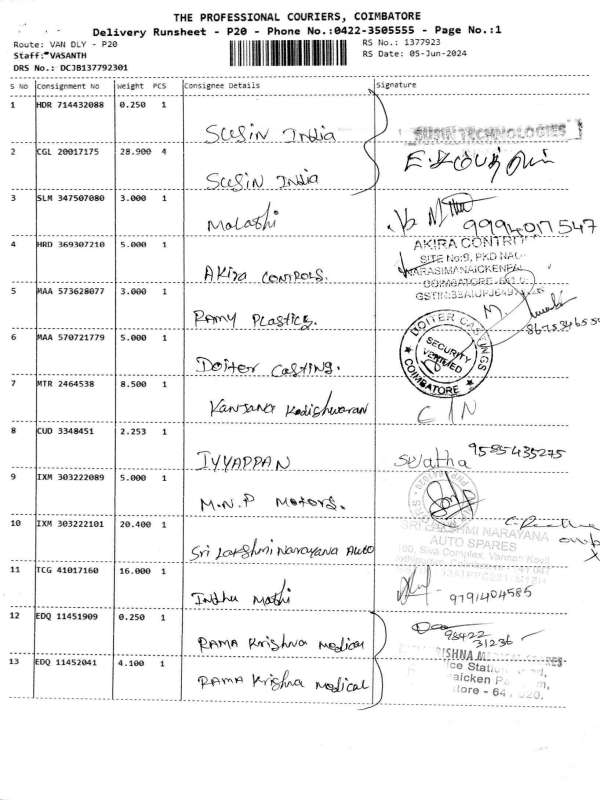 THE PROFESSIONAL COURIERS, COIMBATORE
Delivery Runsheet - P20 - Phone No.:0422-3505555 - Page No.:1
Route: VAN DLY - P20 RS No.: 1377923
Staff: VASANTH RS Date: 05-Jun-2024
DRS No.: DCJB137792301
S No Consignment No Weight PCS Consignee Details Signature
1 HDR 714432088 0.250 1
Susin India SUSIN TECHNOLOGIES
2 CGL 20017175 28.900 4
Susin India
3 SLM 347507080 3.000 1
Malathi 9994017547
4 HRD 369307210 5.000 1 AKIRA CONTROL
SITE No:9, PKD NAG
NARASIMANAICKENPAL
Akira CONTROLS. COIMBATORE
5 MAA 573628077 3.000 1
Ramy Plastics.
6 MAA 570721779 5.000 1 DOITER CASTINGS
SECURITY
VERIFIED
Doiter Casting. COIMBATORE
7 MTR 2464538 8.500 1
Kanjana Kodishwaran
8 CUD 3348451 2.253 1
IYYAPPAN Swatha 9585435275
9 IXM 303222089 5.000 1
M.N.P MOTORS.
10 IXM 303222101 20.400 1 SRI LAKSHMI NARAYANA
AUTO SPARES
Sri Lakshmi Narayana Auto
11 TCG 41017160 16.000 1
Indhu Mathi 9791404585
12 EDQ 11451909 0.250 1
98422
31236
RAMA Krishna Medical
13 EDQ 11452041 4.100 1
RAMA Krishna Medical